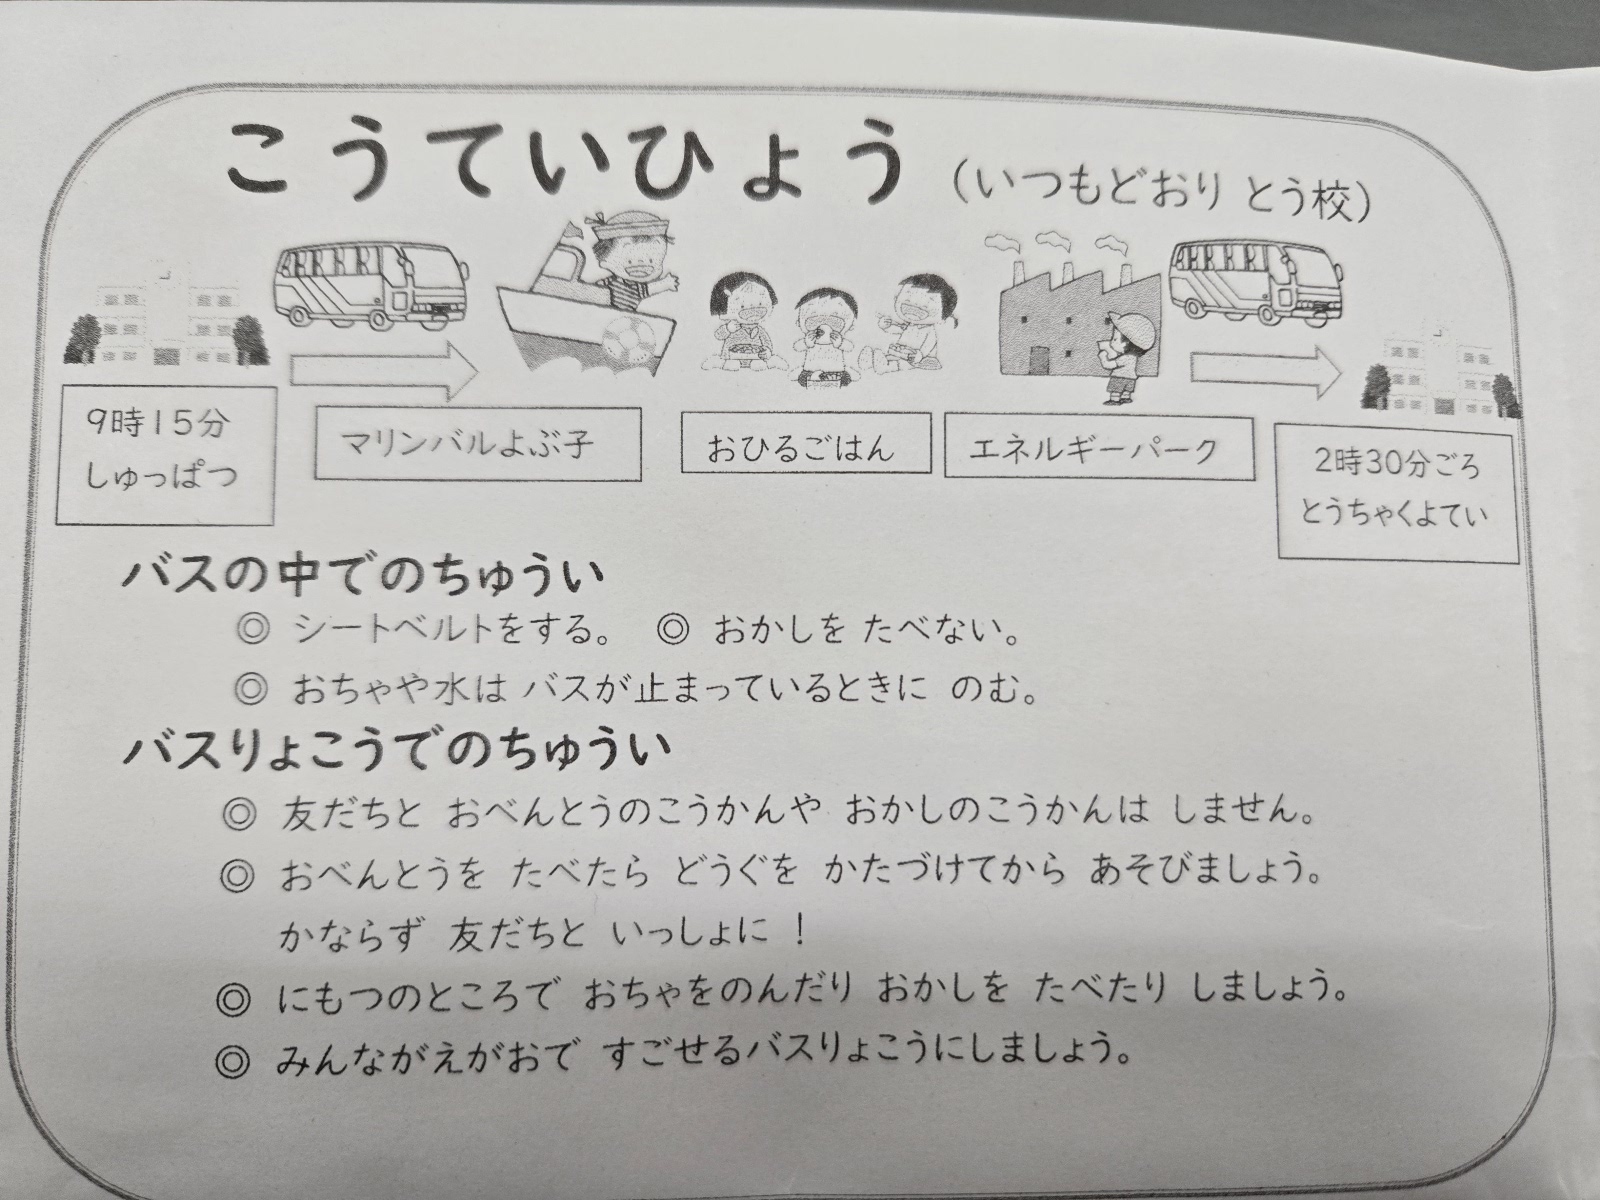 こうていひょう（いつもどおり とう校）
9時15分
しゅっぱつ
マリンバルよぶ子
おひるごはん
エネルギーパーク
2時30分ごろ
とうちゃくよてい
バスの中でのちゅうい
◎ シートベルトをする。 ◎ おかしを たべない。
◎ おちゃや水は バスが止まっているときに のむ。
バスりょこうでのちゅうい
◎ 友だちと おべんとうのこうかんや おかしのこうかんは しません。
◎ おべんとうを たべたら どうぐを かたづけてから あそびましょう。
かならず 友だちと いっしょに！
◎ にもつのところで おちゃをのんだり おかしを たべたり しましょう。
◎ みんながえがおで すごせるバスりょこうにしましょう。